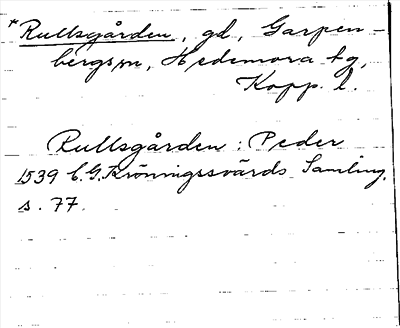 *Rullsgården, gd, Garpen-
bergs sn, Hedemora tg,
Kopp. l.
Rullsgården: Peder
1539 C.G. Krönnigssvärds Samling,
s. 77.